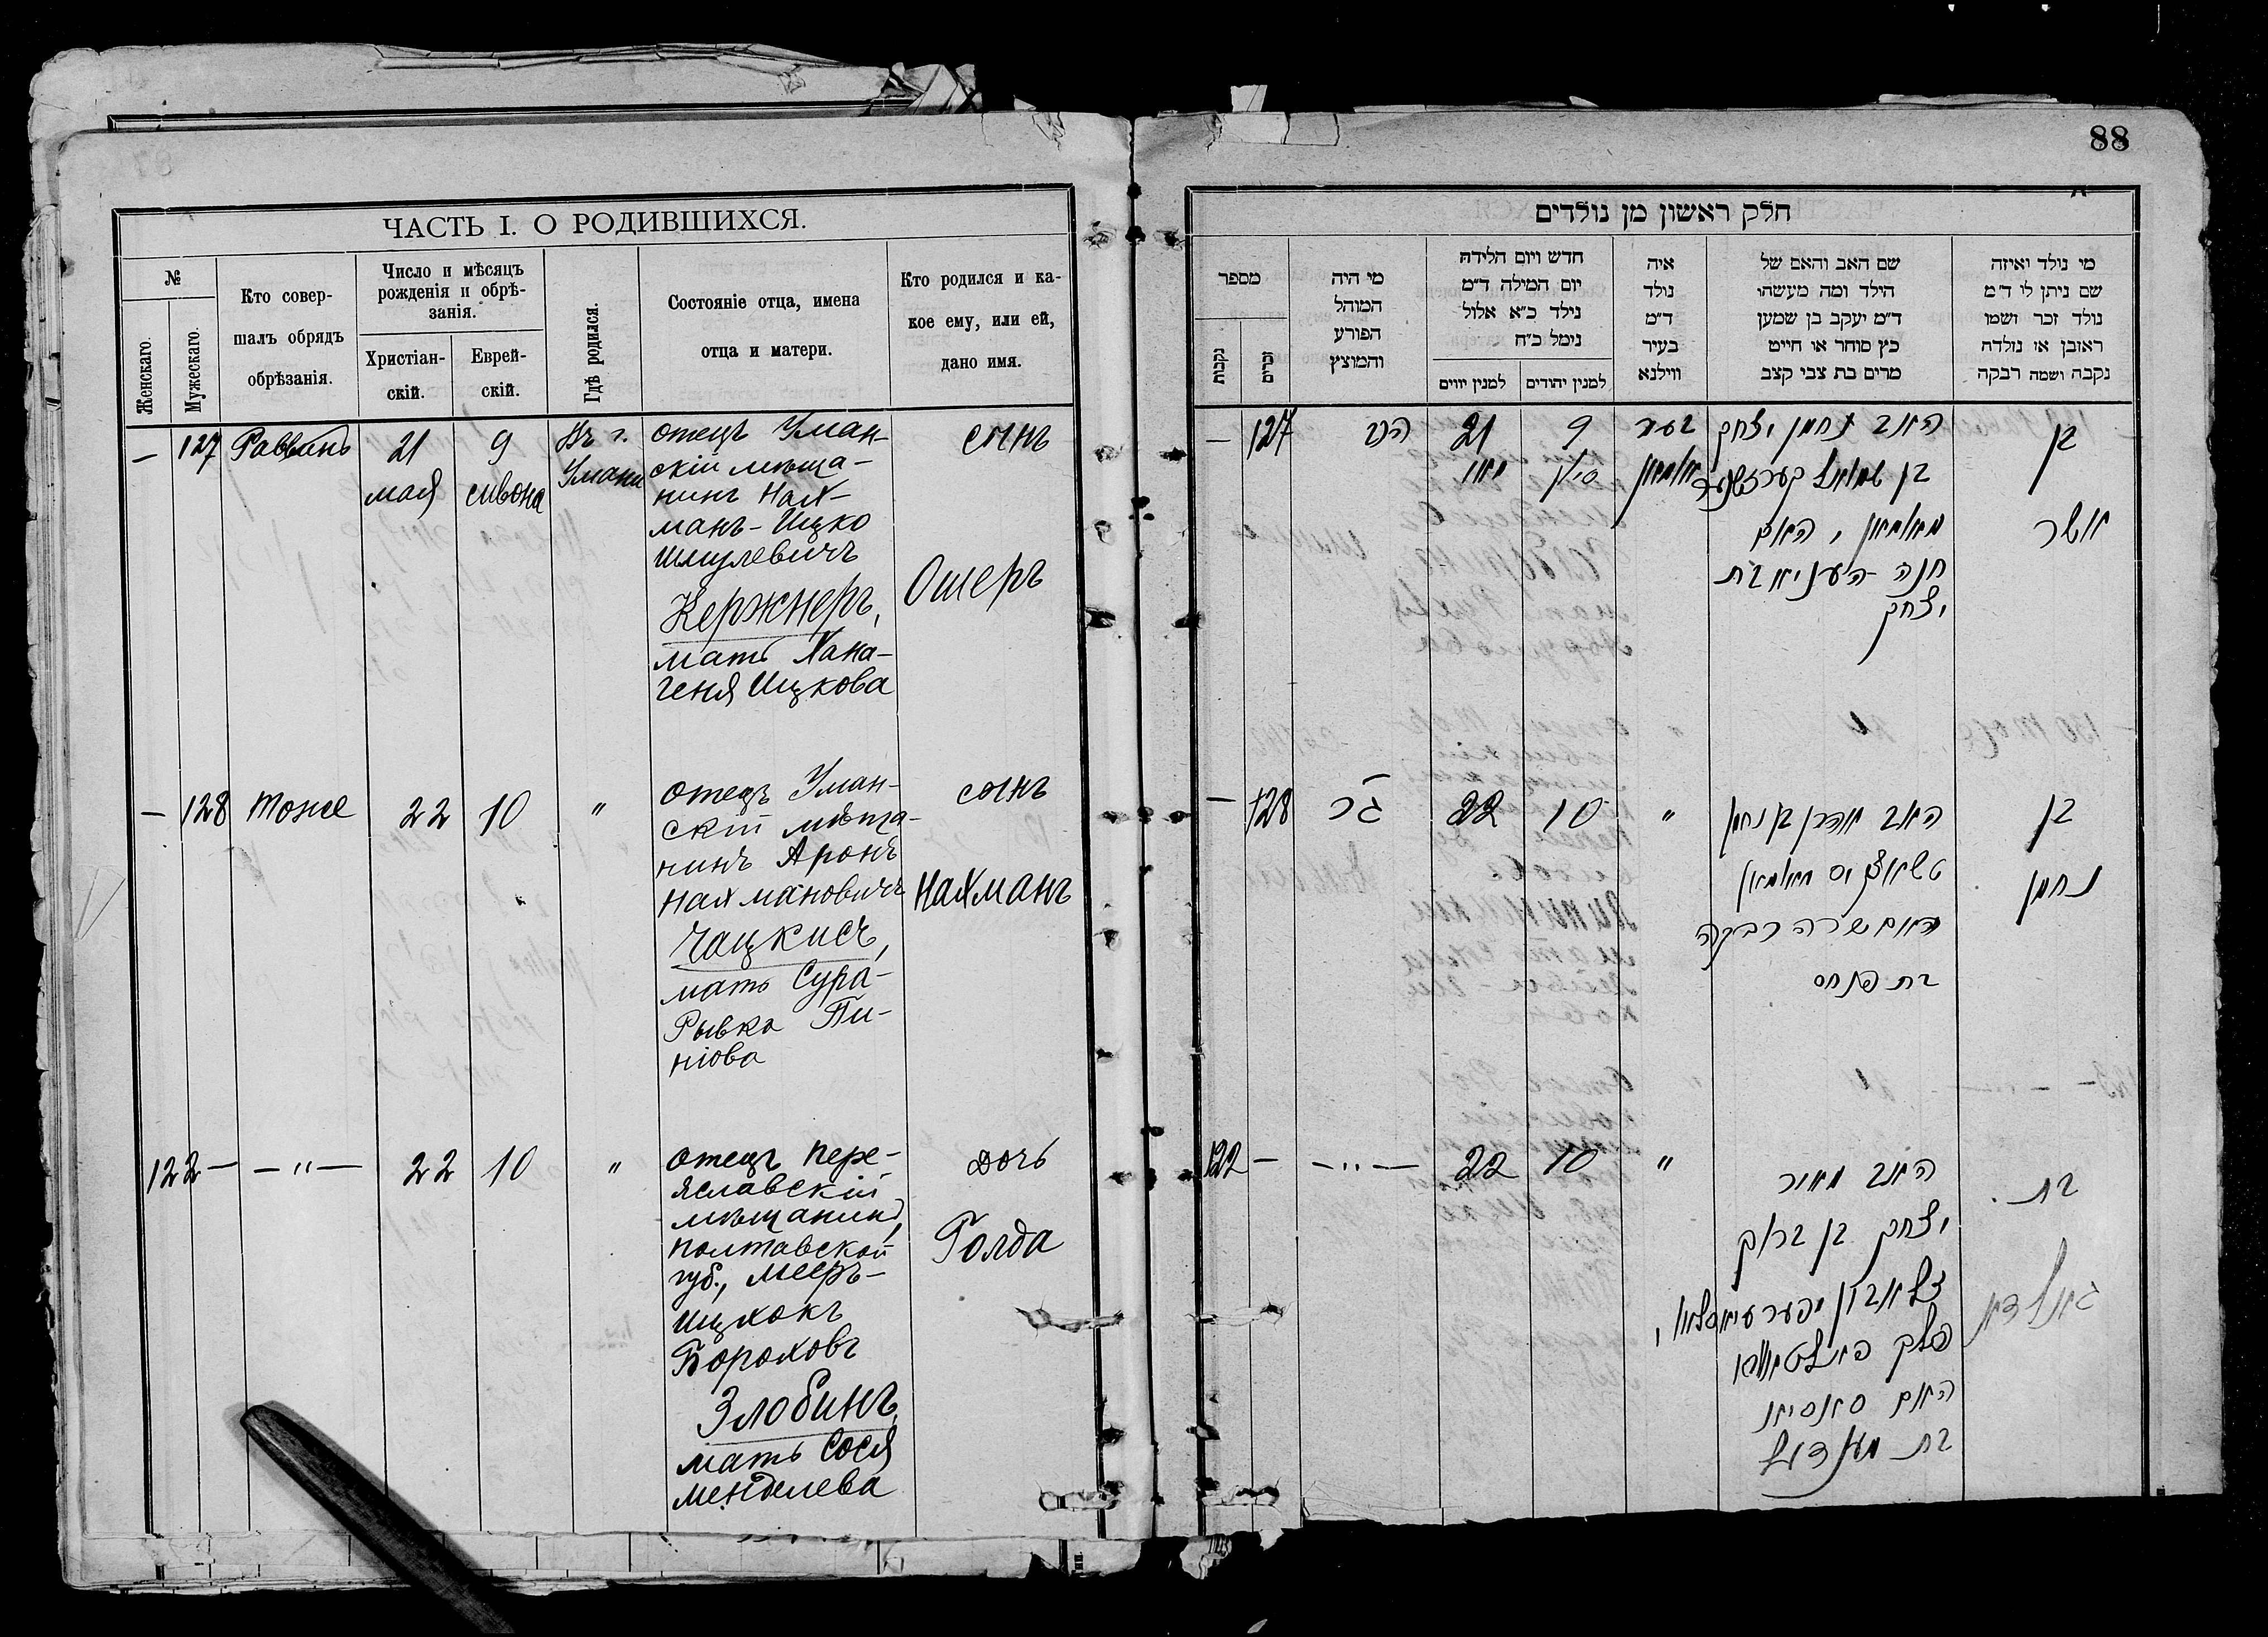 88
ЧАСТЬ I. О РОДИВШИХСЯ.
№
Женскаго.
Мужескаго.
Кто совер-
шалъ обрядъ
обрѣзанія.
Число и мѣсяцъ
рожденія и обрѣ-
занія.
Христіан-
скій.
Еврей-
скій.
Гдѣ родился.
Состояніе отца, имена
отца и матери.
Кто родился и ка-
кое ему, или ей,
дано имя.
— 127 Раввинъ
21
мая
9
сивона
Въ г.
Умани
отецъ Уман-
скій мѣща-
нинъ Нах-
манъ-Ицко
Шмулевичъ
Кержнеръ,
мать Хана-
Геня Ицкова
сынъ
Ошеръ
— 128 Тоже 22 10 "
отецъ Уман-
скій мѣща-
нинъ Аронъ
Нахмановичъ
Чацкисъ,
мать Сура-
Рывка Пи-
ніова
сынъ
Нахманъ
122 — — " — 22 10 "
отецъ Пере-
яславскій
мѣщанинъ,
Полтавской
губ., Мееръ-
Ицхокъ
Бороховъ
Злобинъ,
мать Сося
Менделева
дочь
Голда
חלק ראשון מן נולדים
מי נולד ואיזה
שם ניתן לו ד״מ
נולד זכר ושמו
ראובן או נולדה
נקבה ושמה רבקה
שם האב והאם של
הילד ומה מעשהו
ד״מ יעקב בן שמעון
כץ סוחר או חייט
מרים בת צבי קצב
איה
נולד
ד״מ
בעיר
ווילנא
חדש ויום הלידה
יום המילה ד״מ
נולד כ״א אלול
נימל כ״ח
למנין יהודים
למנין יוונים
מי היה
המוהל
הפורע
והמוצץ
מספר
זכרים
נקבות
בן
אשר
האב נחמן יצחק
בן שמואל קערזשנער
מאומאן, האם
חנה העניא בת
יצחק
בעיר
אומאן
9
סיון
21
מאי
הרב
127 —
בן
נחמן
האב אהרן בן נחמן
טשאצקיס מאומאן
האם שרה רבקה
בת פנחס
" 10 22 128 —
בת
גאלדא
האב מאיר
יצחק בן ברוך
זלאבין מפערעיאסלאוו,
פלך פאלטאווא
האם סאסיא
בת מענדיל
" 10 22 — " — — 122